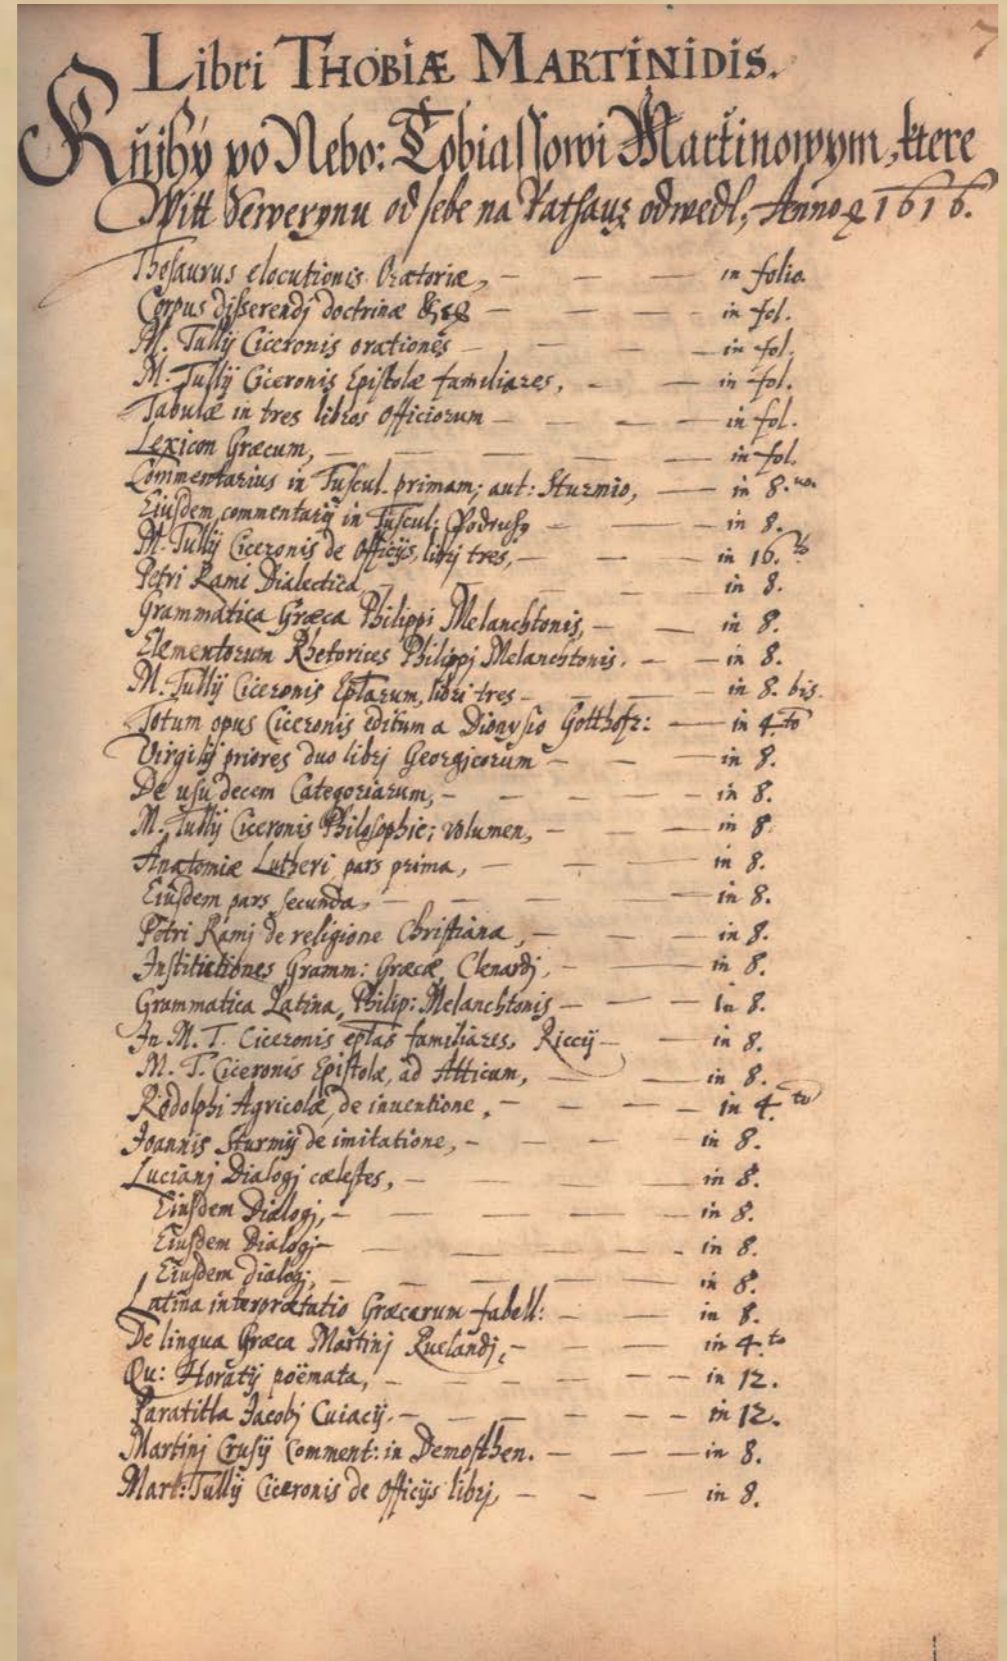 7
Libri THOBIÆ MARTINIDIS.
Knihy po Nebo: Tobiassowi Martinowym, ktere
Witt Sewerynu od sebe na Rathauz odwedl, Anno 1616.
Thesaurus elocutionis Oratoriæ, — — — in folio.
Corpus disserendj doctrinæ — — — in fol.
M. Tullij Ciceronis orationes — — — in fol.
M. Tullij Ciceronis Epistolæ familiares, — — in fol.
Tabulæ in tres libros officiorum — — — in fol.
Lexicon Græcum, — — — — — in fol.
Commentarius in Tuscul. primam; aut: Sturmio, — in 8.uo.
Eiusdem commentarij in Tuscul: — — — in 8.
M. Tullij Ciceronis de Officijs, librj tres, — — in 16.to
Petri Rami Dialectica, — — — — in 8.
Grammatica Græca Philippi Melanchtonis, — — in 8.
Elementorum Rhetorices Philippj Melanchtonis. — — in 8.
M. Tullij Ciceronis Eplarum, libri tres — — — in 8. bis.
Totum opus Ciceronis editum a Dionysio Gotthofr: — in 4.to
Virgilij priores duo librj Georgicorum — — — in 8.
De usu decem Categoriarum, — — — — in 8.
M. Tullij Ciceronis Philosophic; volumen, — — — in 8.
Anatomiæ Lutheri pars prima, — — — in 8.
Eiusdem pars secunda, — — — — in 8.
Petri Ramj de religione Christiana, — — — in 8.
Institutiones Gramm: Græcæ, Clenardj, — — in 8.
Grammatica Latina, Philip: Melanchtonis — — — in 8.
In M. T. Ciceronis eplas familiares, Riccij — — in 8.
M. T. Ciceronis Epistolæ, ad Atticum, — — — in 8.
Rodolphi Agricolæ, de inventione, — — — — in 4.to
Joannis Sturmij de imitatione, — — — — in 8.
Lucianj Dialogj cælestes, — — — — in 8.
Eiusdem Dialogj, — — — — — in 8.
Eiusdem Dialogj — — — — — in 8.
Eiusdem dialogj, — — — — — in 8.
Latina interprætatio Græcarum fabell: — — in 8.
De lingua Græca Martinj Ruelandj, — — — in 4.to
Qu: Horatij poëmata, — — — — — in 12.
Paratitla Jacobj Cuiacij. — — — — — in 12.
Martinj Crusij Comment: in Demosthen. — — — in 8.
Mart: Tullij Ciceronis de Officijs librj, — — — in 8.